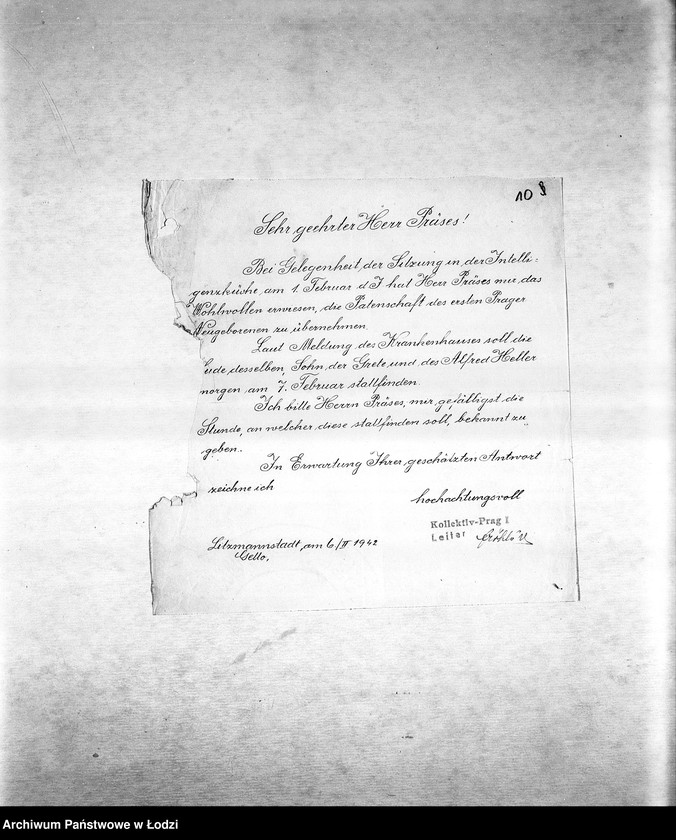 10
Sehr geehrter Herr Präses!
Bei Gelegenheit der Sitzung in der Intelli-
genzküche, am 1. Februar d J hat Herr Präses mir das
Wohlwollen erwiesen, die Patenschaft des ersten Prager
Neugeborenen zu übernehmen.
Laut Meldung des Krankenhauses soll die
desselben, Sohn der Grete und des Alfred Heller
morgen am 7. Februar stattfinden.
Ich bitte Herrn Präses, mir gefälligst die
Stunde, an welcher diese stattfinden soll, bekannt zu
geben.
In Erwartung Ihrer geschätzten Antwort
zeichne ich
hochachtungsvoll
Kollektiv-Prag I
Leiter
Litzmannstadt, am 6/II 1942
Getto,
Archiwum Państwowe w Łodzi